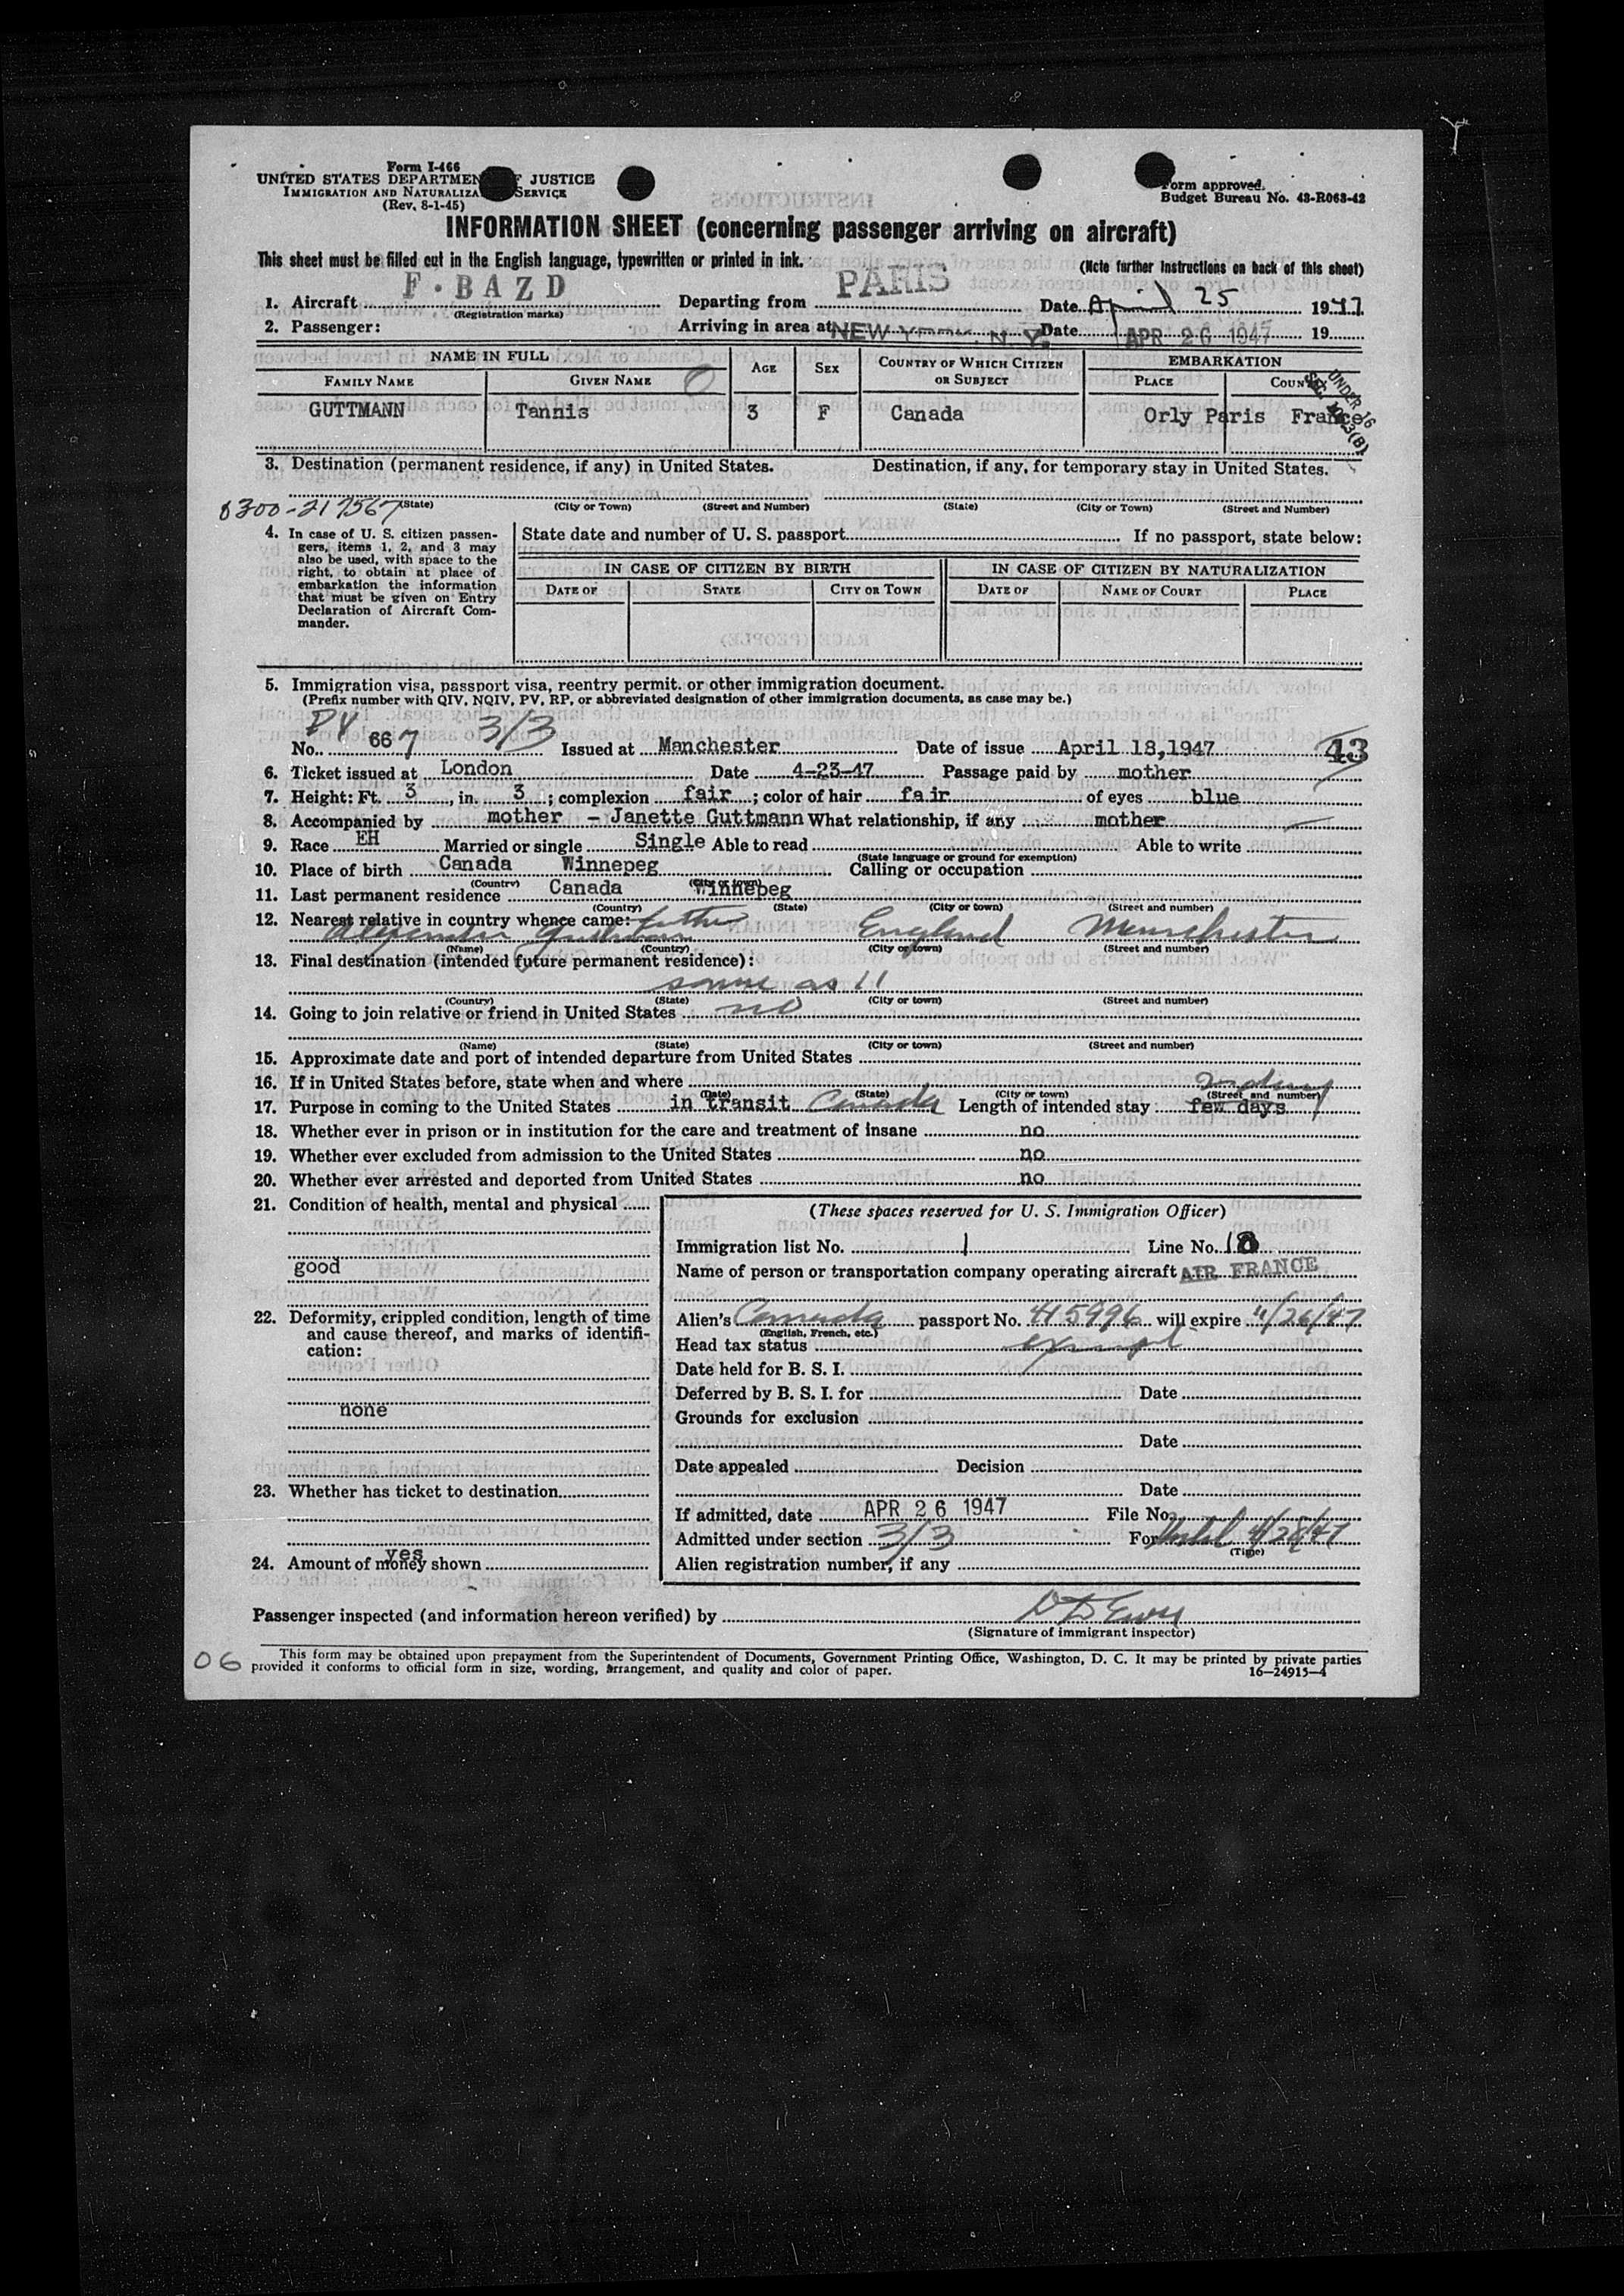 Form I-466
UNITED STATES DEPARTMENT OF JUSTICE
IMMIGRATION AND NATURALIZATION SERVICE
(Rev. 8-1-45)
Form approved.
Budget Bureau No. 43-R063-42
INFORMATION SHEET (concerning passenger arriving on aircraft)
This sheet must be filled out in the English language, typewritten or printed in ink.
(Note further instructions on back of this sheet)
1. Aircraft F·BAZD Departing from PARIS Date April 25 1947
(Registration marks)
2. Passenger: Arriving in area at NEW YORK, N. Y. Date APR 26 1947 19
NAME IN FULL AGE SEX COUNTRY OF WHICH CITIZEN OR SUBJECT EMBARKATION
FAMILY NAME GIVEN NAME PLACE COUNTRY
UNDER 16
GUTTMANN Tannis 3 F Canada Orly Paris France
3. Destination (permanent residence, if any) in United States. Destination, if any, for temporary stay in United States.
0300-217567 (State) (City or Town) (Street and Number) (State) (City or Town) (Street and Number)
4. In case of U. S. citizen passengers, items 1, 2, and 3 may also be used, with space to the right, to obtain at place of embarkation the information that must be given on Entry Declaration of Aircraft Commander.
State date and number of U. S. passport If no passport, state below:
IN CASE OF CITIZEN BY BIRTH IN CASE OF CITIZEN BY NATURALIZATION
DATE OF STATE CITY OR TOWN DATE OF NAME OF COURT PLACE
5. Immigration visa, passport visa, reentry permit. or other immigration document.
(Prefix number with QIV, NQIV, PV, RP, or abbreviated designation of other immigration documents, as case may be.)
PV 3/3
No. 667 Issued at Manchester Date of issue April 18,1947 43
6. Ticket issued at London Date 4-23-47 Passage paid by mother
7. Height: Ft. 3, in. 3; complexion fair; color of hair fair of eyes blue
8. Accompanied by mother - Janette Guttmann What relationship, if any mother
9. Race EH Married or single Single Able to read Able to write
(State language or ground for exemption)
10. Place of birth Canada Winnepeg Calling or occupation
(Country) (City or town)
11. Last permanent residence Canada Winnepeg
(Country) (State) (City or town) (Street and number)
12. Nearest relative in country whence came: father
Alexander Guttmann England Manchester
(Name) (Country) (City or town) (Street and number)
13. Final destination (intended future permanent residence):
same as 11
(Country) (State) (City or town) (Street and number)
14. Going to join relative or friend in United States no
(Name) (State) (City or town) (Street and number)
15. Approximate date and port of intended departure from United States
16. If in United States before, state when and where
(Date) (State) (City or town) (Street and number)
17. Purpose in coming to the United States in transit Canada Length of intended stay few days
18. Whether ever in prison or in institution for the care and treatment of insane no
19. Whether ever excluded from admission to the United States no
20. Whether ever arrested and deported from United States no
21. Condition of health, mental and physical
good
22. Deformity, crippled condition, length of time and cause thereof, and marks of identification:
none
23. Whether has ticket to destination
yes
24. Amount of money shown
(These spaces reserved for U. S. Immigration Officer)
Immigration list No. 1 Line No. 18
Name of person or transportation company operating aircraft AIR FRANCE
Alien's Canada passport No. 415996 will expire 11/26/47
(English, French, etc.)
Head tax status exempt
Date held for B. S. I.
Deferred by B. S. I. for Date
Grounds for exclusion
Date
Date appealed Decision
Date
If admitted, date APR 26 1947 File No.
Admitted under section 3/3 For until 4/28/47
(Time)
Alien registration number, if any
Passenger inspected (and information hereon verified) by
(Signature of immigrant inspector)
06
This form may be obtained upon prepayment from the Superintendent of Documents, Government Printing Office, Washington, D. C. It may be printed by private parties
provided it conforms to official form in size, wording, arrangement, and quality and color of paper. 16—24915-4